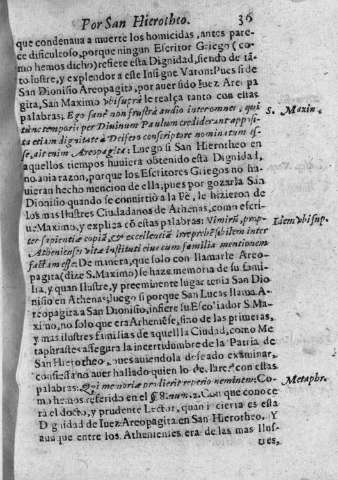 Por San Hierotheo. 36
que condenaua a muerte los homicidas, antes pare-
ce dificultoso, porque ningun Escritor Griego (co-
mo hemos dicho) refiere esta Dignidad, siendo de tã-
to lustre, y explendor a este Insigne Varon: Pues si de
San Dionisio Areopagita, por auer sido Iuez Areopa
gita, San Maximo vbi suprà le realça tanto con estas
palabras, Ego sanè non frustrà audio interomnes, qui S. Maxim.
tunc temporis per Diuinum Paulum crediderant apposi-
ta etiam dignitate à Deifero conscriptore nominatum es-
se, ait enim Areopagita: Luego si San Hierotheo en
aquellos tiempos huuiera obtenido esta Dignidad,
no auia razon, porque los Escritores Griegos no hu-
uieran hecho mencion de ella; pues por gozarla San
Dionisio quando se conuirtiò a la Fè, le hizieron de
los mas Ilustres Ciudadanos de Athenas, como escri-
ue Maximo, y explica cõ estas palabras: Nimirũ, prop- Idem vbi sup.
ter sapientiæ copiã, & excellentiã irreprehẽsibilem inter
Athenienses vitæ instituti eius cum familia mentionem
factam esse: De manera, que solo con llamarle Areo-
pagita (dize S. Maximo) se haze memoria de su fami-
lia, y quan Ilustre, y preeminente lugar tenia San Dio
nisio en Athenas; luego si porque San Lucas llama A-
reopagita a San Dionisio, infiere su Escoliador S. Ma-
ximo, no solo que era Atheniẽse, sino de las primeras,
y mas ilustres familias de aquella Ciudad, como Me
taphraste assegura la incertidumbre de la Patria de
San Hierotheo, pues auiendola deseado examinar,
confiessa no auer hallado quien lo declare con estas
palabras: Qui memoriæ prodierit reperio neminem: Co- Metaphr.
mo hemos referido en el §8. num. 2. Con que conoce
rà el docto, y prudente Lector, quan incierta es esta
Dignidad de Iuez Areopagita en San Hierotheo. Y
aunque entre los Athenienses era de las mas Ilus-
tres,